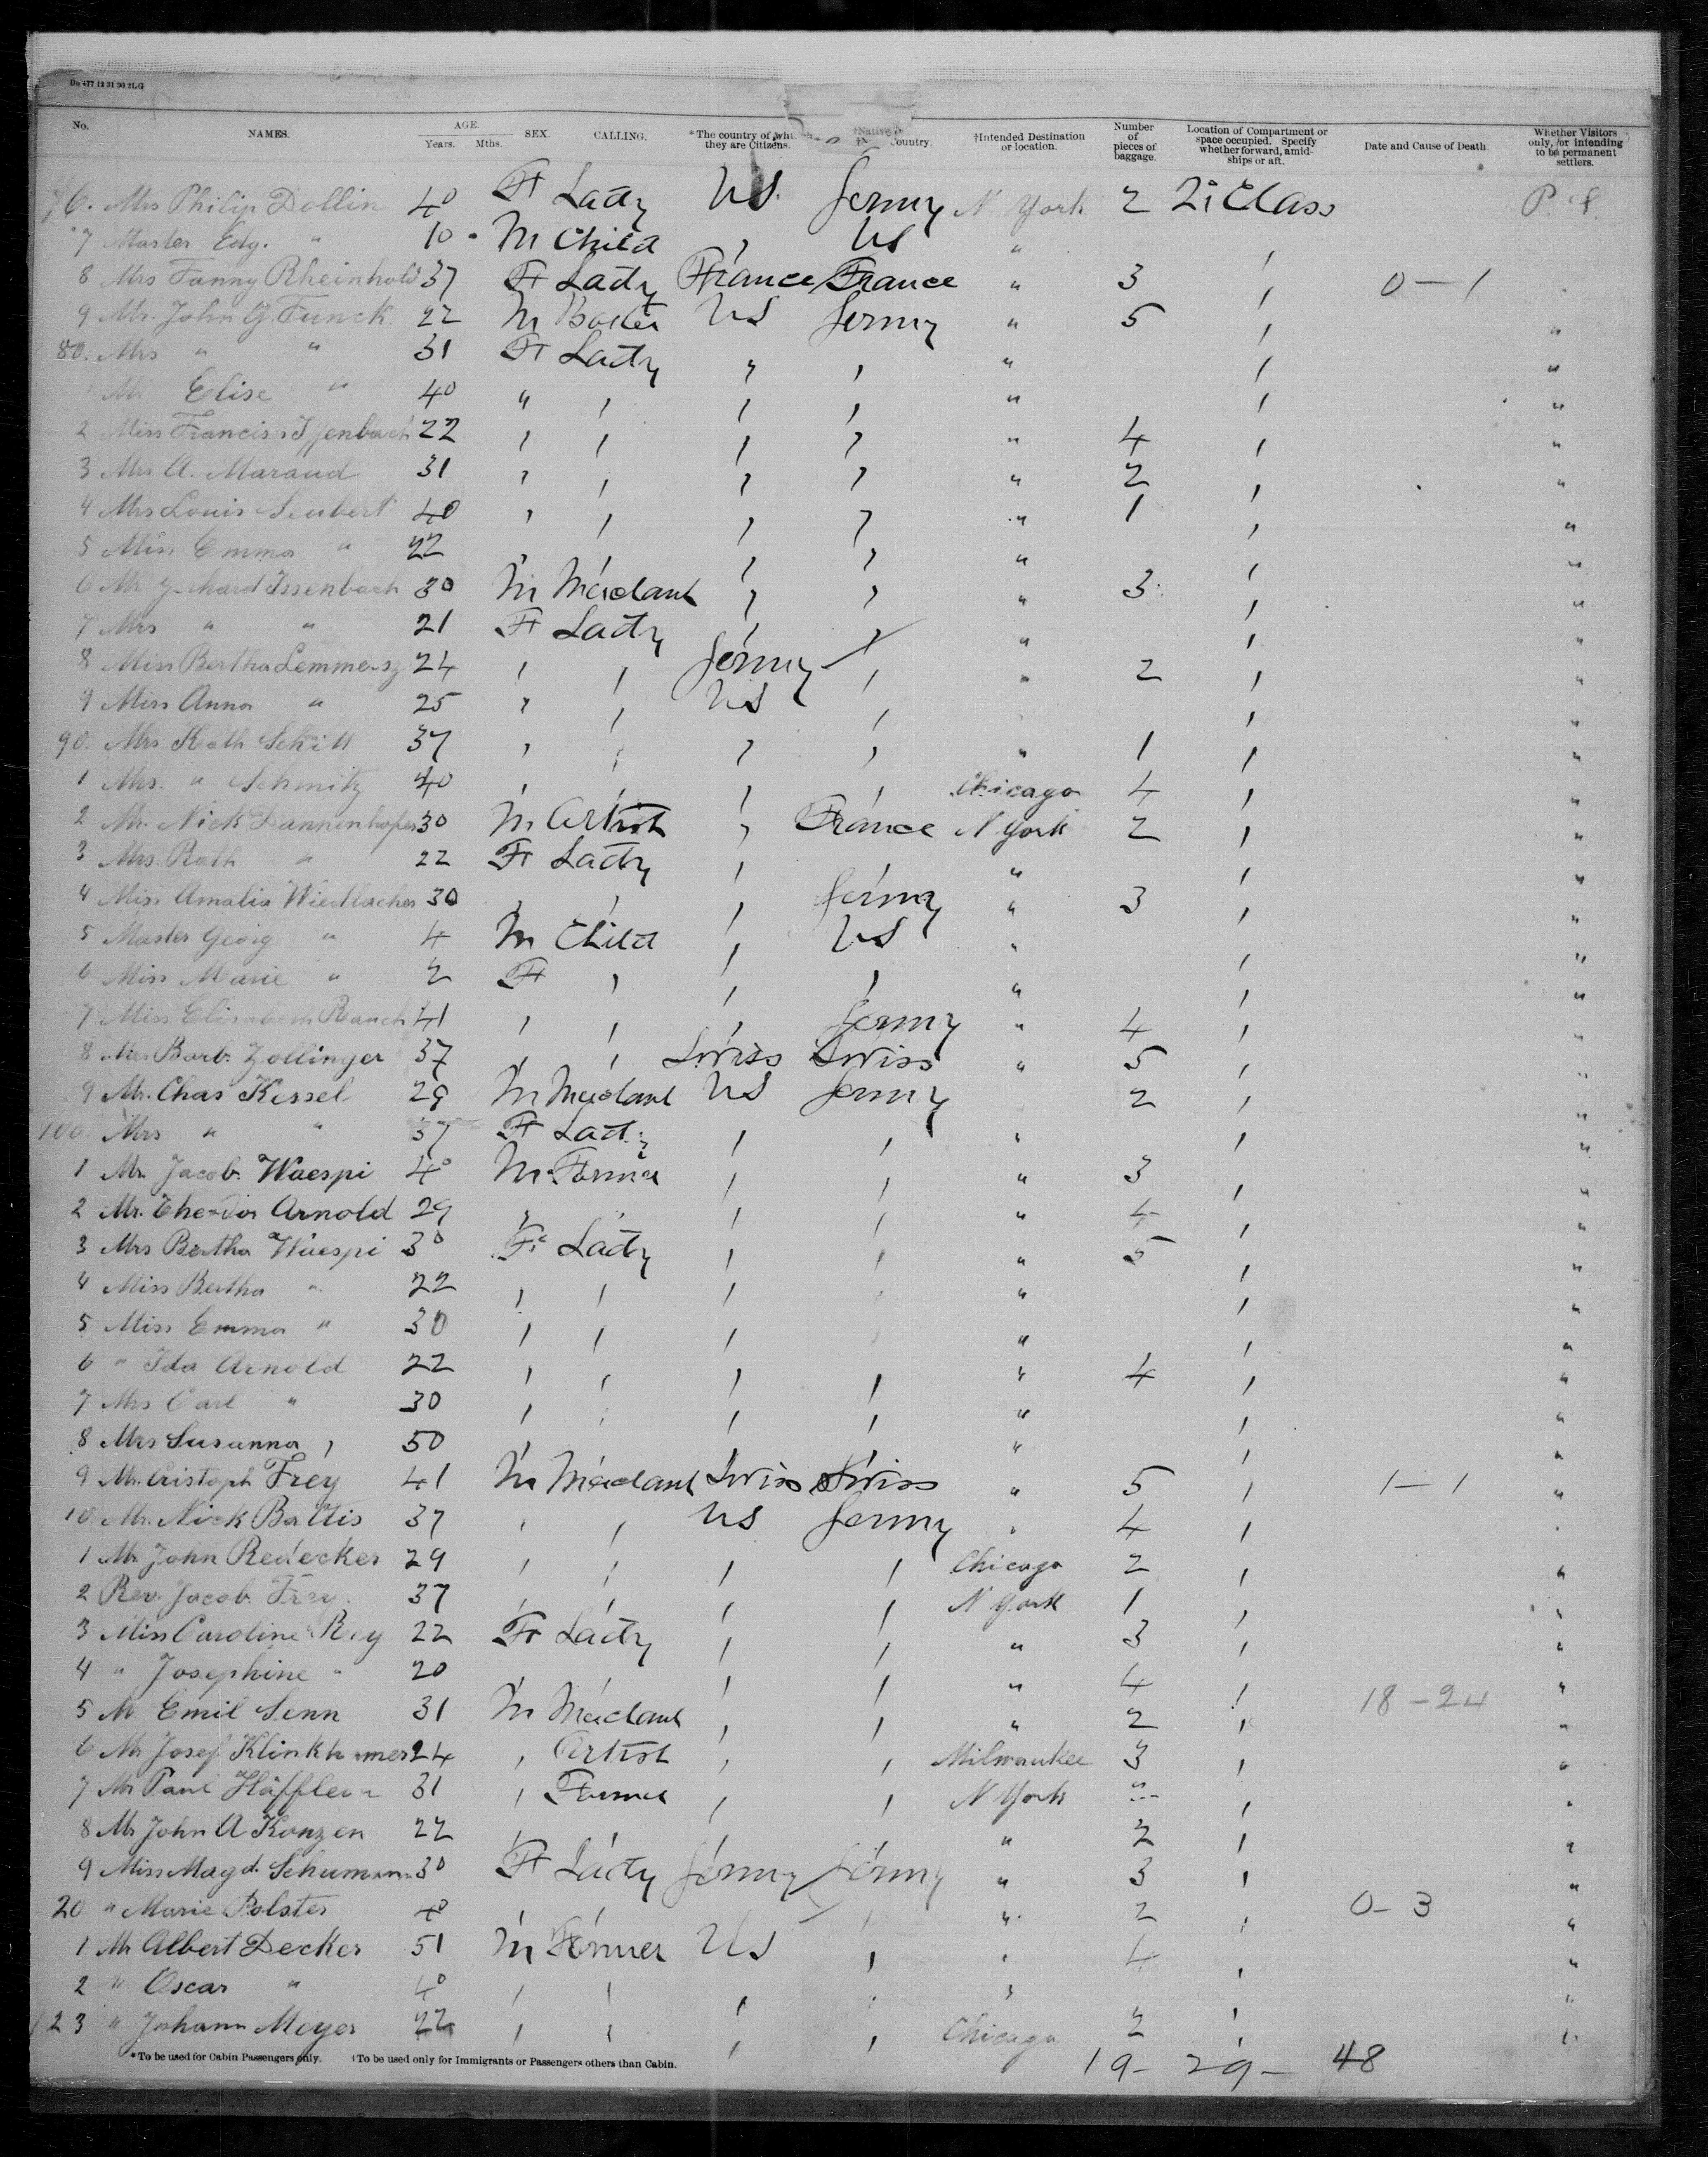 Do 477 12 31 90 2LG
No. NAMES. AGE. Years. Mths. SEX. CALLING. *The country of which they are Citizens. †Native Country. †Intended Destination or location. Number of pieces of baggage. Location of Compartment or space occupied. Specify whether forward, amidships or aft. Date and Cause of Death. Whether Visitors only, or intending to be permanent settlers.
76. Mrs Philip Dollin 40 F Lady US Germy N. York 2 2i Class P. S.
7 Master Edg. " 10 M Child , US "
8 Mrs Fanny Rheinhold 37 F Lady France France " 3 , 0-1
9 Mr. John G. Funck 22 M US Germy " 5 , "
80. Mrs " " 31 F Lady , , " , "
Elise " 40 " , , , " , "
2 Miss Francis 22 , , , , " 4 , "
3 Mrs A. Maraud 31 , , , , " 2 , "
4 Mrs Louis Seubert 40 , , , , " 1 , "
5 Miss Emma " 22 , , , , " , "
6 Mr Issenbach 30 M , , " 3 , "
7 Mrs " " 21 F Lady , , " , "
8 Miss Bertha 24 , , Germy , " 2 , "
9 Miss Anna " 25 , , US , , "
90. Mrs Kath Schill 37 , , , , " 1 , "
1 Mrs. " Schmitz 40 , , , , Chicago 4 ,
2 Mr. Nick Dannenhofer 30 M Artist , France N York 2 , "
3 Mrs. Rath " 22 F Lady , , " , "
4 Miss Amalia 30 , , , Germy " 3 , "
5 Master Georg " 4 M Child , US " , "
6 Miss Marie " 2 F , , , " , "
7 Miss Elisabeth Rauch 41 , , , Germy " 4 , "
8 Mrs Barb. Zollinger 37 , , Swiss Swiss " 5 , "
9 Mr. Chas Kessel 29 M US Germy 2 , "
100. Mrs " " 37 F Lady , , " , "
1 Mr. Jacob. Waespi 40 M Farmer , , " 3 , "
2 Mr. Theodor Arnold 29 , , , " 4 , "
3 Mrs Bertha Waespi 30 F Lady , , " 5 , "
4 Miss Bertha " 22 , , , " , "
5 Miss Emma " 30 , , , " , "
6 " Ida Arnold 22 , , , , " 4 , "
7 Mrs Carl " 30 , , , , " , "
8 Mrs Susanna , 50 , , , , " , "
9 Mr. Cristoph Frey 41 M Swiss Swiss " 5 , 1-1 "
10. Mr. Nick Battis 37 , , US Germy " 4 ,
1 Mr John Redecker 29 , , , , Chicago 2 , "
2 Rev. Jacob. Frey 37 , , , , N York 1 , "
3 Miss Caroline 22 F Lady , , " 3 , "
4 " Josephine " 20 , , , , " 4 , "
5 Mr Emil Senn 31 M , , " 2 , 18-24 "
6 Mr Josef 24 , Artist , , Milwaukee 3 , "
7 Mr Paul 31 , Farmer , , N York ,
8 Mr John A Konzen 22 , , , , " 2 , "
9 Miss Magd. Schumann 30 F Lady Germy Germy " 3 , "
20 " Marie Polster 40 , , , , " 2 , 0-3 "
1 Mr Albert Decker 51 M Farmer US , " 4 , "
2 " Oscar " 40 , , , , , , "
123 " Johann Meyer 22 , , , , Chicago 2 , "
*To be used for Cabin Passengers only. †To be used only for Immigrants or Passengers others than Cabin.
19- 29- 48